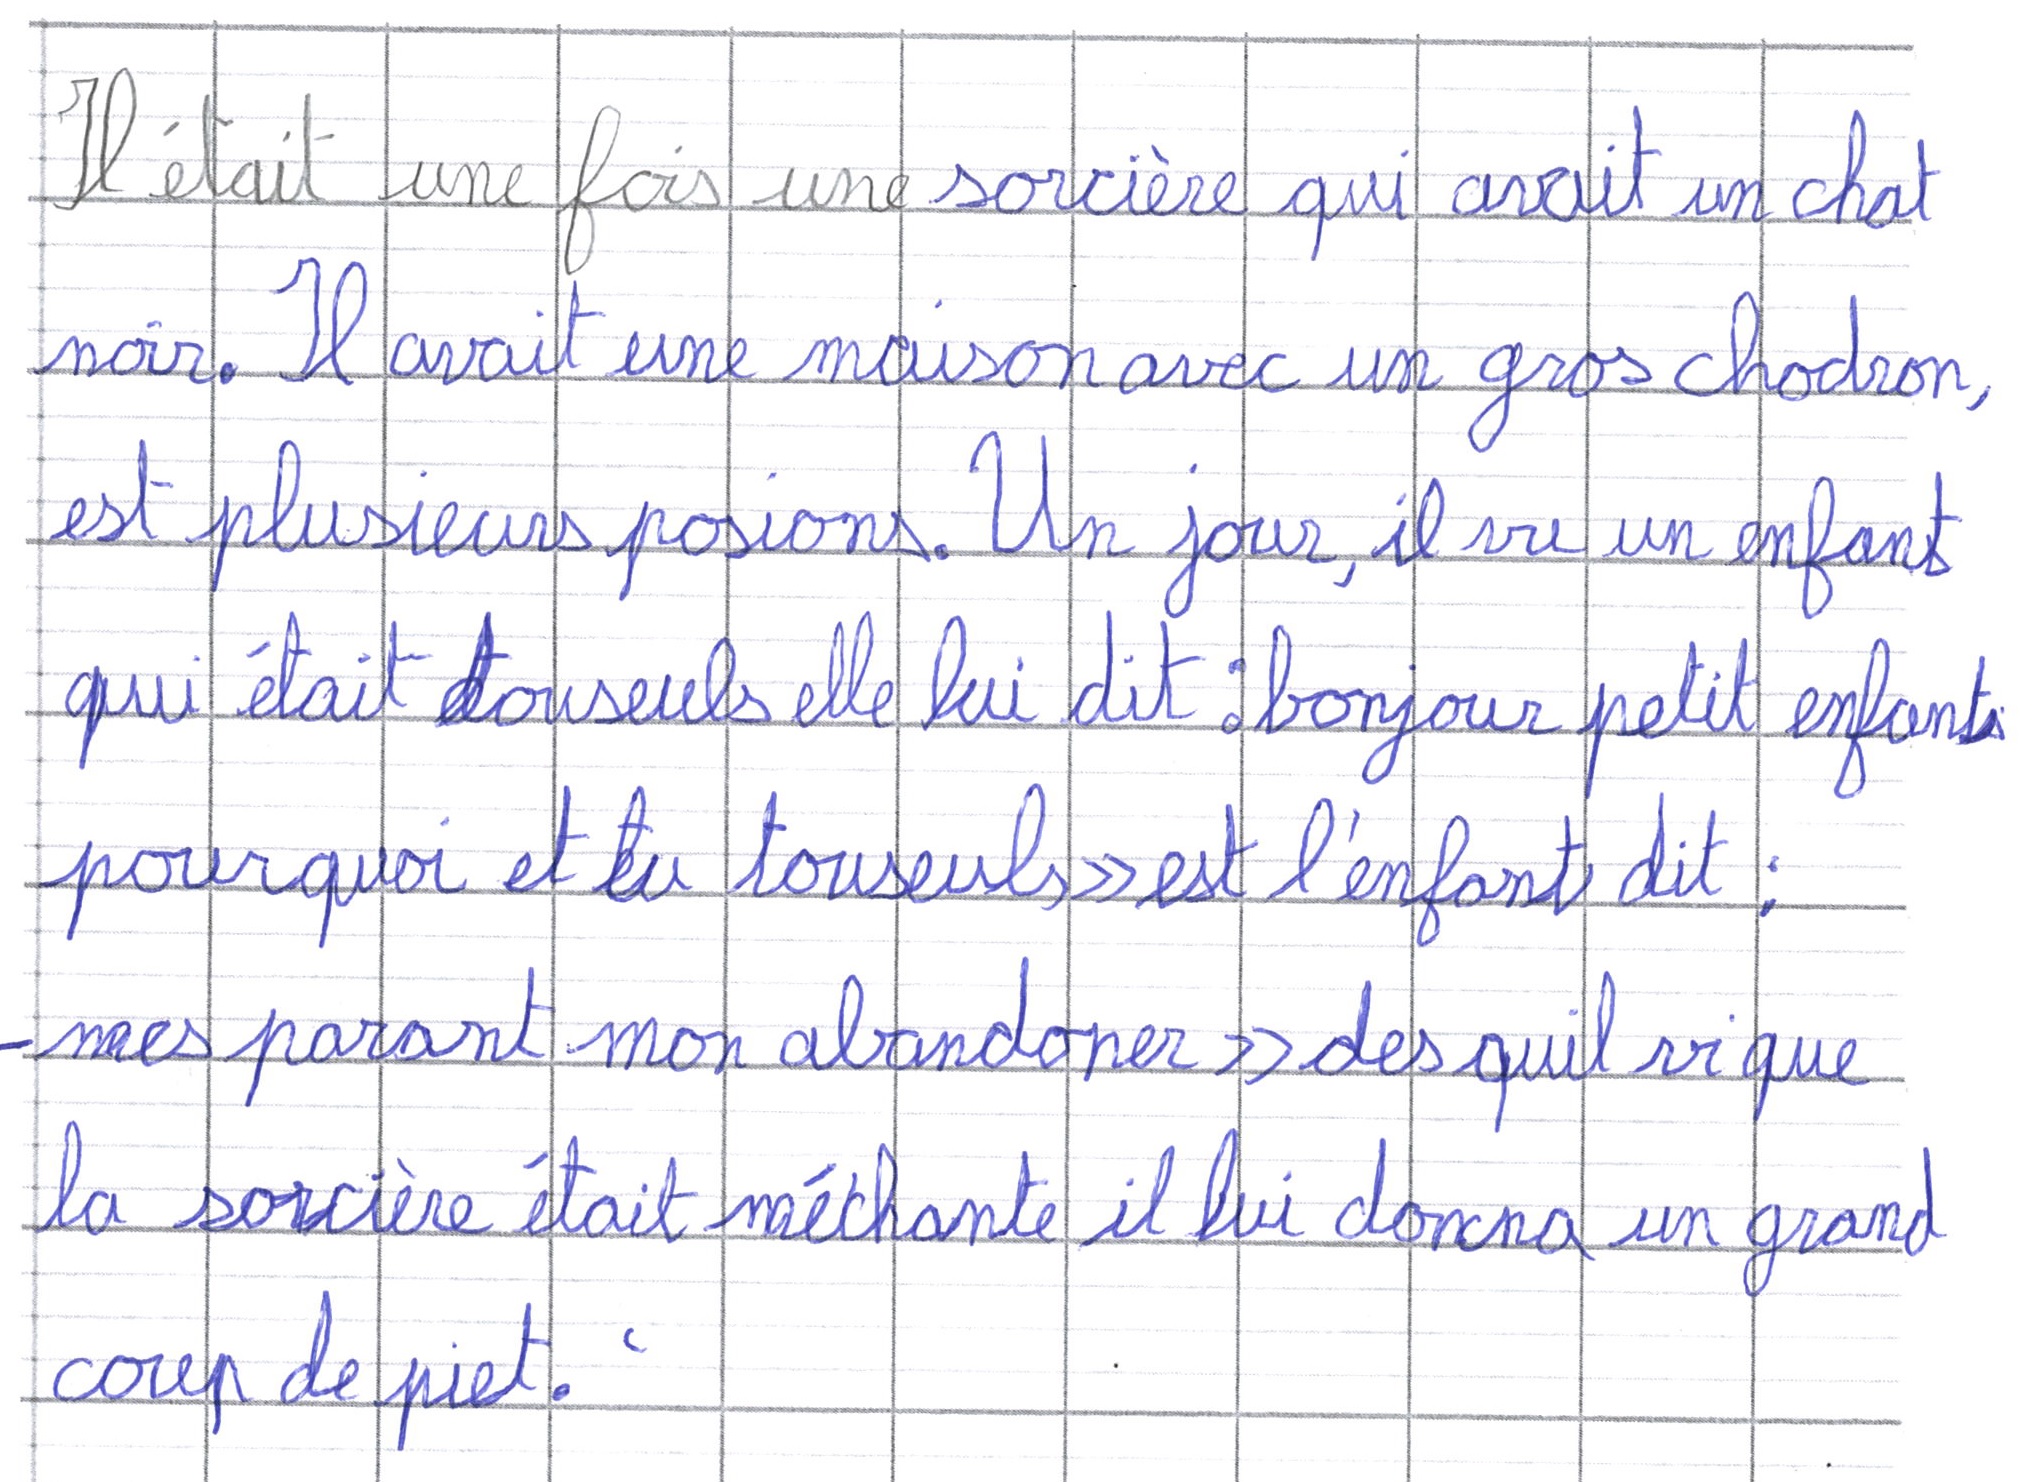 Il était une fois une sorcière qui avait un chat
noir. Il avait une maison avec un gros chodron,
est plusieurs posions. Un jour, il vu un enfant
qui était touseuls elle lui dit : bonjour petit enfants
pourquoi et tu touseuls » est l'enfant dit :
- mes parant mon abandoner » des quil vi que
la sorcière était méchante il lui donna un grand
coup de piet.